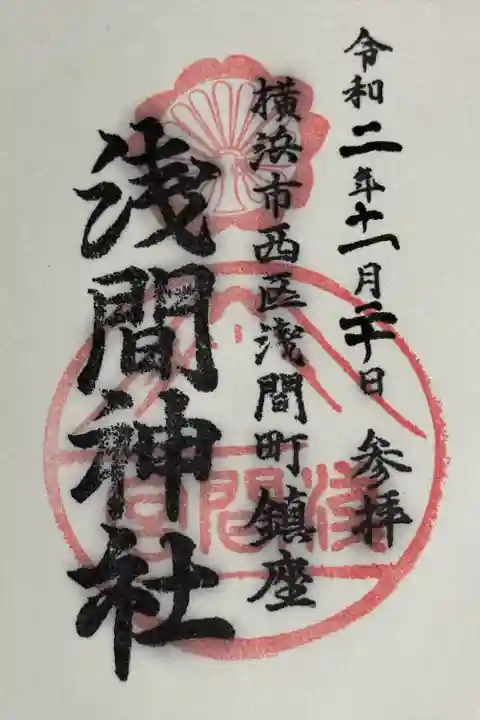 令和二年十一月二十日 参拝
横浜市西区浅間町鎮座
浅間神社
浅間宮